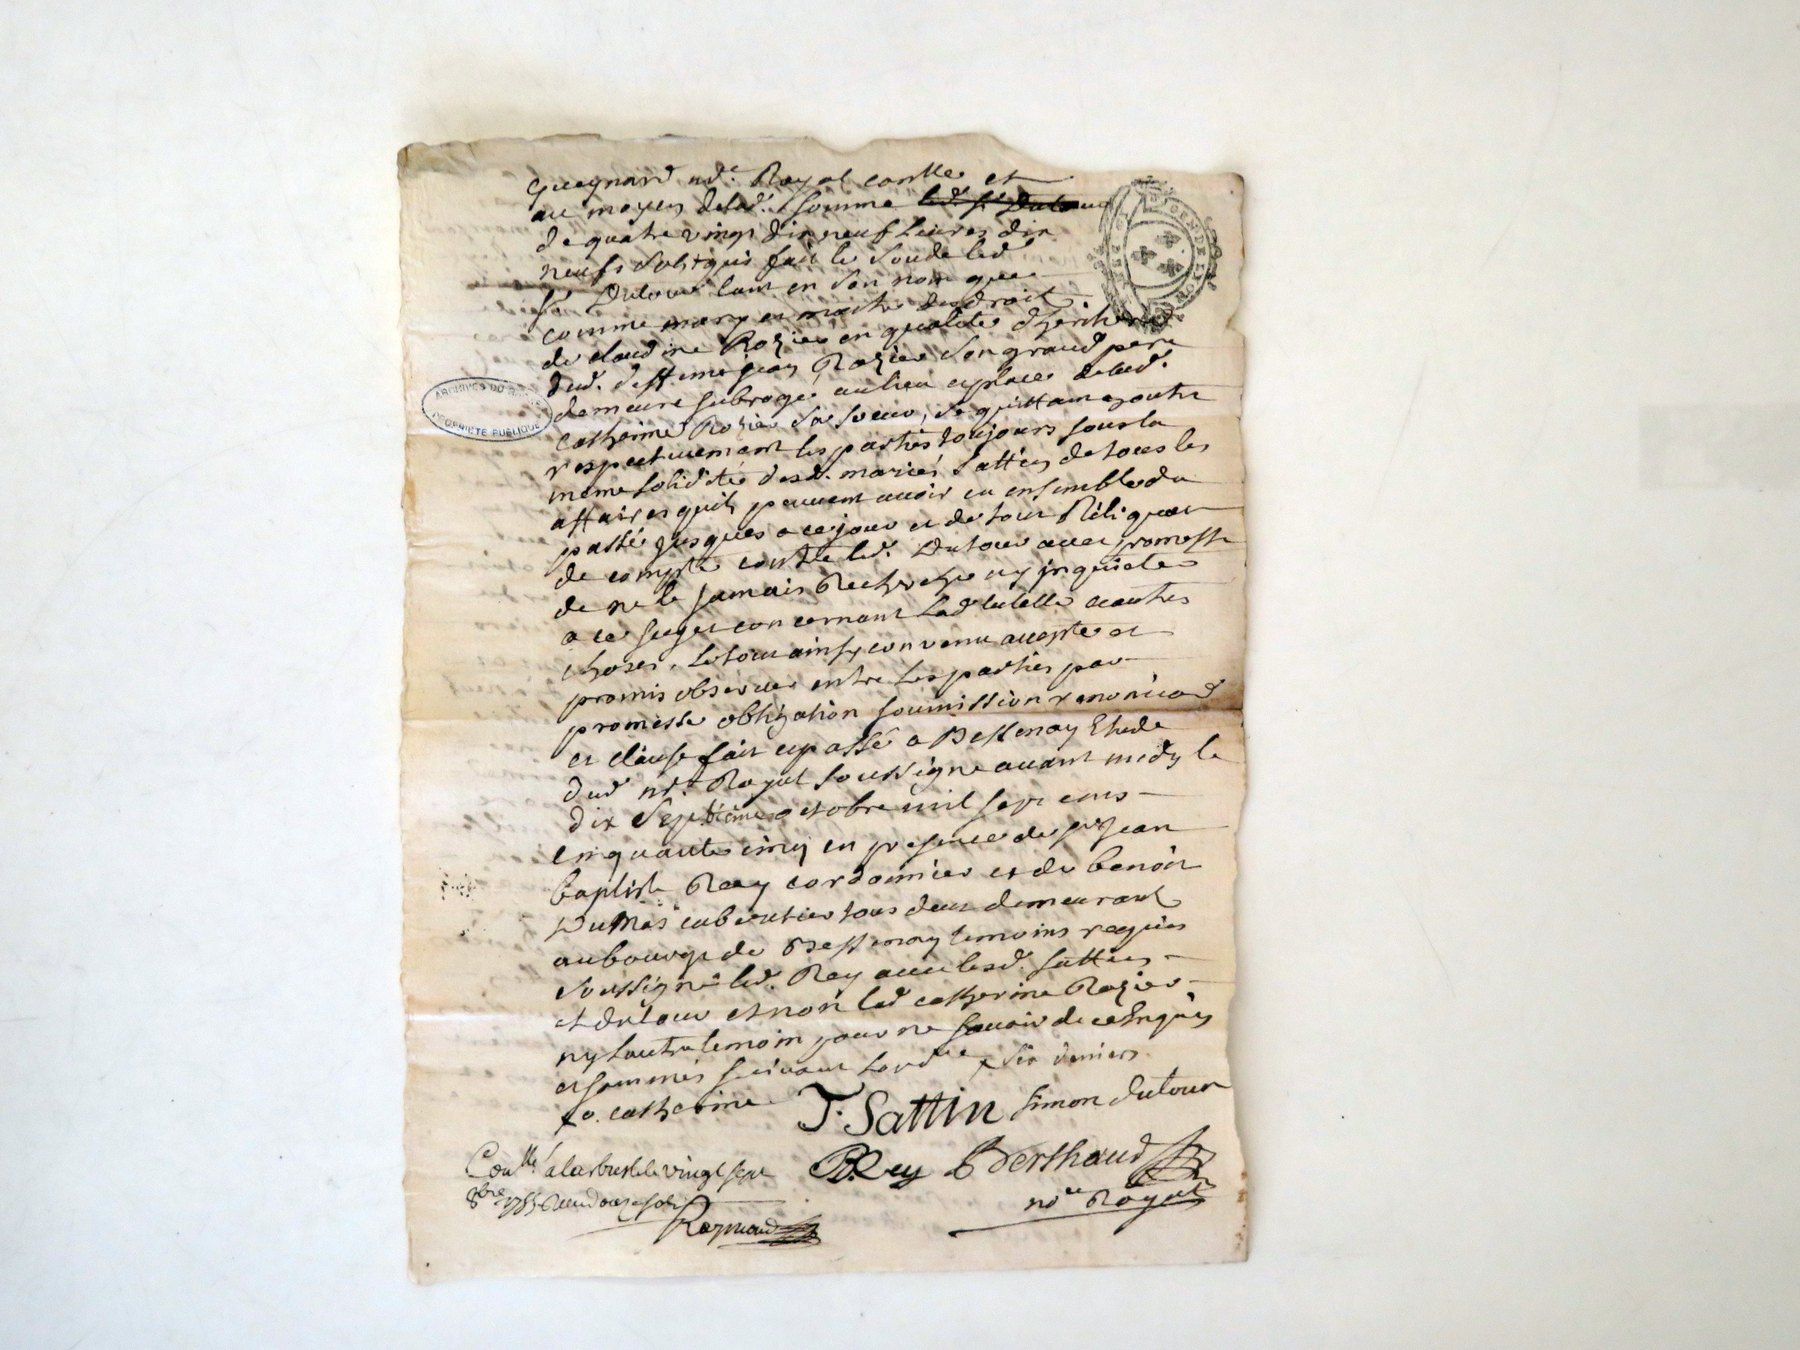 Guegnard nre. Royal contlle et
au moyen delad. somme led. sr. Dutour
de quatre vingt dix neuf Livres dix
neufs sols qui fait le soude led
sr Dutour tant en son nom que
comme mary et maitre des droit
de claudine Rozier en qualité d'heritiere
dud. deff. sieur jean Rozier son grand pere
demeure subrogé au lieu et place delad.
Catherine Rozier sa soeur, se quittant et outre
respectivement les parties toujours sous la
meme solidité desd. mariés sattin de tous les
affaires quils peuvent avoir eu ensemble du
passé jusques a ce jour et de tout Reliquat
de compte contre led. Dutour avec promesse
de ne le jamais Recherche ny inquieter
a ce sujet concernant lad tutelle et autres
choses, Le tout ainsy convenu accepté et
promis observer entre les parties par
promesse obligation soumission renonciaõ
et clause fait et passé a Bessenay Etude
dud nre. Royal soussigné avant midy le
dix septieme octobre mil sept cens
cinquante cinq en presence de sr Jean
baptiste Rey cordonnier et de benoit
Dumas cabaretier tous deux demeurant
au bourg de Bessenay temoins requis
soussigné led. Rey avec lesd. sattin
et dutour et non lad catherine Rozier
ny l'autre temoin pour ne savoir de ce Enquis
et sommés suivant Lordce + six deniers
+ o. catherine
J. Sattin simon dutour
B. Rey Berthaud
nore Royal
Contllé a larbresle le vingt sept
8bre 1755 Receu douze sols
Raymond
GEN. DE LYON
ARCHIVES DU RHONE
PROPRIETE PUBLIQUE